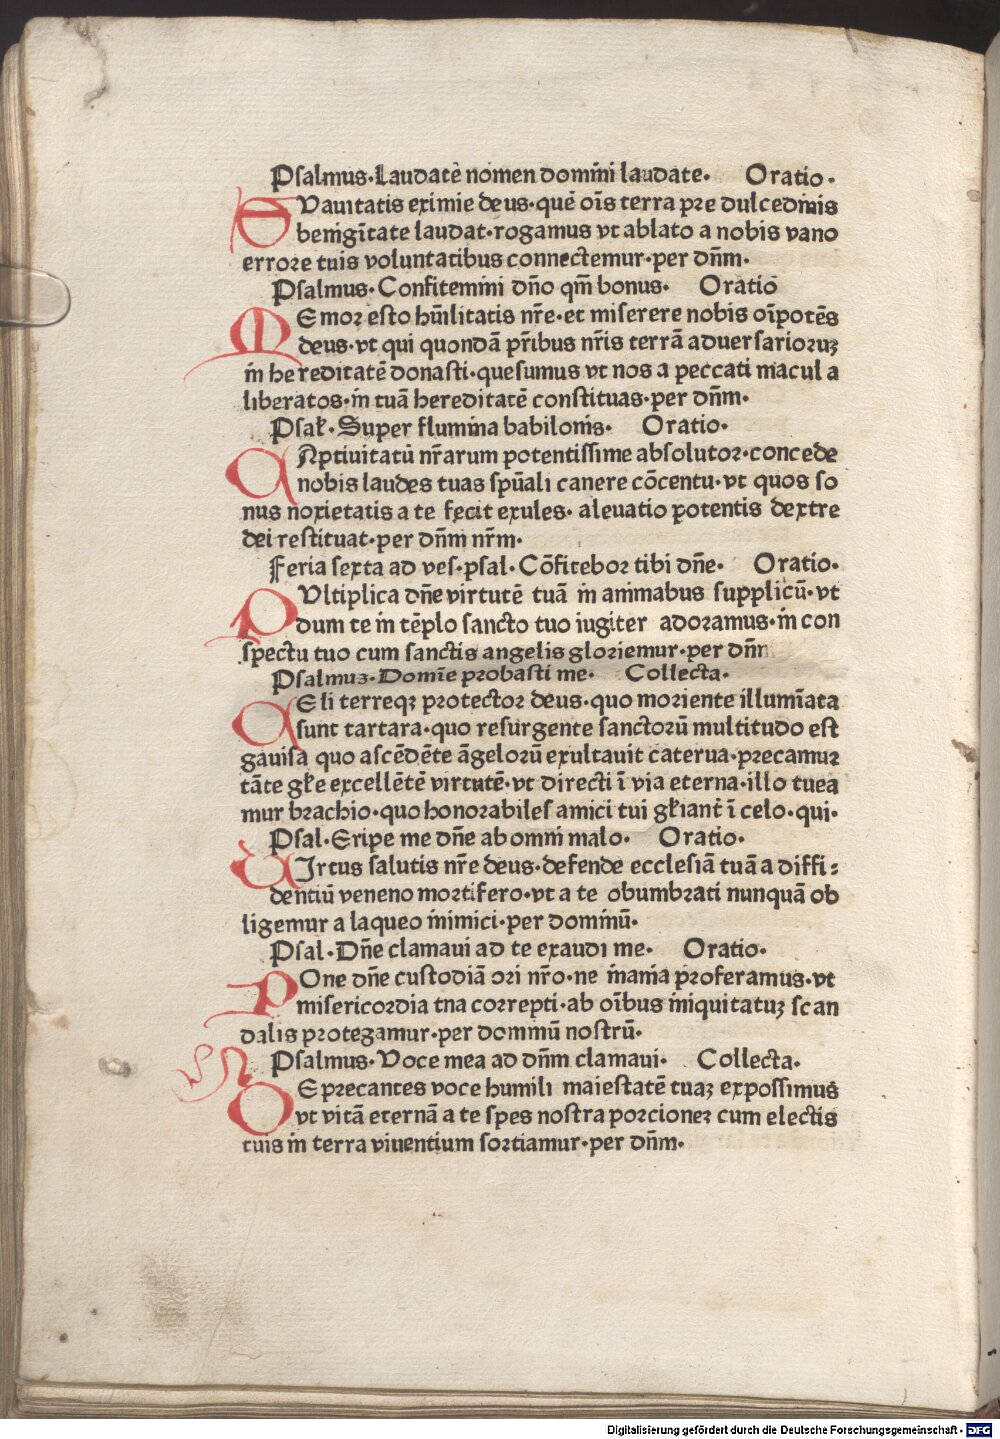 Psalmus·Laudatē nomen domīni laudate· Oratio·
SVauitatis eximie deus·quē oīs terra pre dulcedinis
benigītate laudat·rogamus vt ablato a nobis vano
errore tuis voluntatibus connectemur·per dn̄m·
Psalmus·Confitemini dn̄o qm̄ bonus· Oratio
MEmor esto hūilitatis nr̄e·et miserere nobis oīpotēs
deus·vt qui quondā pr̄ibus nr̄is terrā aduersarioruꝫ
in hereditatē donasti·quesumus vt nos a peccati macula
liberatos·in tuā hereditatē constituas·per dn̄m·
Psal̄·Super flumina babilonis· Oratio·
CAptiuitatū nr̄arum potentissime absolutor·concede
nobis laudes tuas spūali canere cōcentu·vt quos so
nus noxietatis a te fecit exules·aleuatio potentis dextre
dei restituat·per dn̄m nr̄m·
Feria sexta ad ves·psal·Cōfitebor tibi dn̄e· Oratio·
MVltiplica dn̄e virtutē tuā in animabus supplicū·vt
dum te in tēplo sancto tuo iugiter adoramus·in con
spectu tuo cum sanctis angelis gloriemur·per dn̄m
Psalmuꝫ·Domīe probasti me· Collecta·
CEli terreqꝫ protector deus·quo moriente illumīata
sunt tartara·quo resurgente sanctorū multitudo est
gauisa quo ascēdēte āgelorū exultauit caterua·precamur
tāte gl̄e excellētē virtutē·vt directi ī via eterna·illo tuea
mur brachio·quo honorabiles amici tui gl̄iant̄ ī celo·qui·
Psal·Eripe me dn̄e ab omni malo· Oratio·
VIrtus salutis nr̄e deus·defende ecclesiā tuā a diffi:
dentiū veneno mortifero·vt a te obumbrati nunquā ob
ligemur a laqueo inimici·per dominū·
Psal·Dn̄e clamaui ad te exaudi me· Oratio·
POne dn̄e custodiā ori nr̄o·ne inania proferamus·vt
misericordia tna correpti·ab oībus iniquitatuꝫ scan
dalis protegamur·per dominū nostrū·
Psalmus·Voce mea ad dn̄m clamaui· Collecta·
DEprecantes voce humili maiestatē tuaꝫ expossimus
vt vitā eternā a te spes nostra porcioneꝫ cum electis
tuis in terra viuentium sortiamur·per dn̄m·
Digitalisierung gefördert durch die Deutsche Forschungsgemeinschaft - DFG